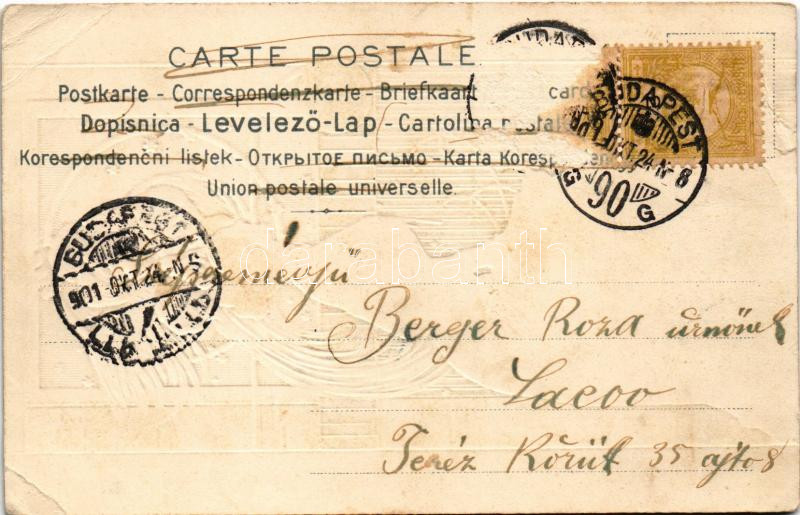 CARTE POSTALE
Postkarte - Correspondenzkarte - Briefkaart card
Dopisnica - Levelező-Lap - Cartolina postale
Korespondenčni listek - Открытое письмо - Karta Korespondencyj
Union postale universelle.
BUDAPEST
901 OKT. 24. N 8
90
G
BUDAPEST
901 OKT. 24. N
darabanth
Berger Roza úrnőnek
Lacoo
Teréz Körút 35 ajto 8